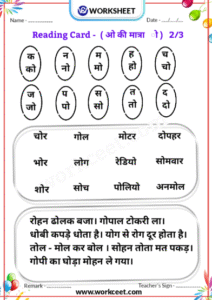 WORKSHEET
Name - Date - .../.../...
Reading Card - ( ओ की मात्रा ो ) 2/3
क को न नो म मो ह हो च चो
ज जो प पो स सो त तो द दो
चोर गोल मोटर दोपहर
भोर लोग रेडियो सोमवार
शोर सोच पोलियो अनमोल
रोहन ढोलक बजा। गोपाल टोकरी ला।
धोबी कपड़े धोता है। योग से रोग दूर होता है।
तोल - मोल कर बोल । सोहन तोता मत पकड़।
गोपी का घोड़ा मोहन ले गया।
Remark - Teacher's Sign -
www.workceet.com